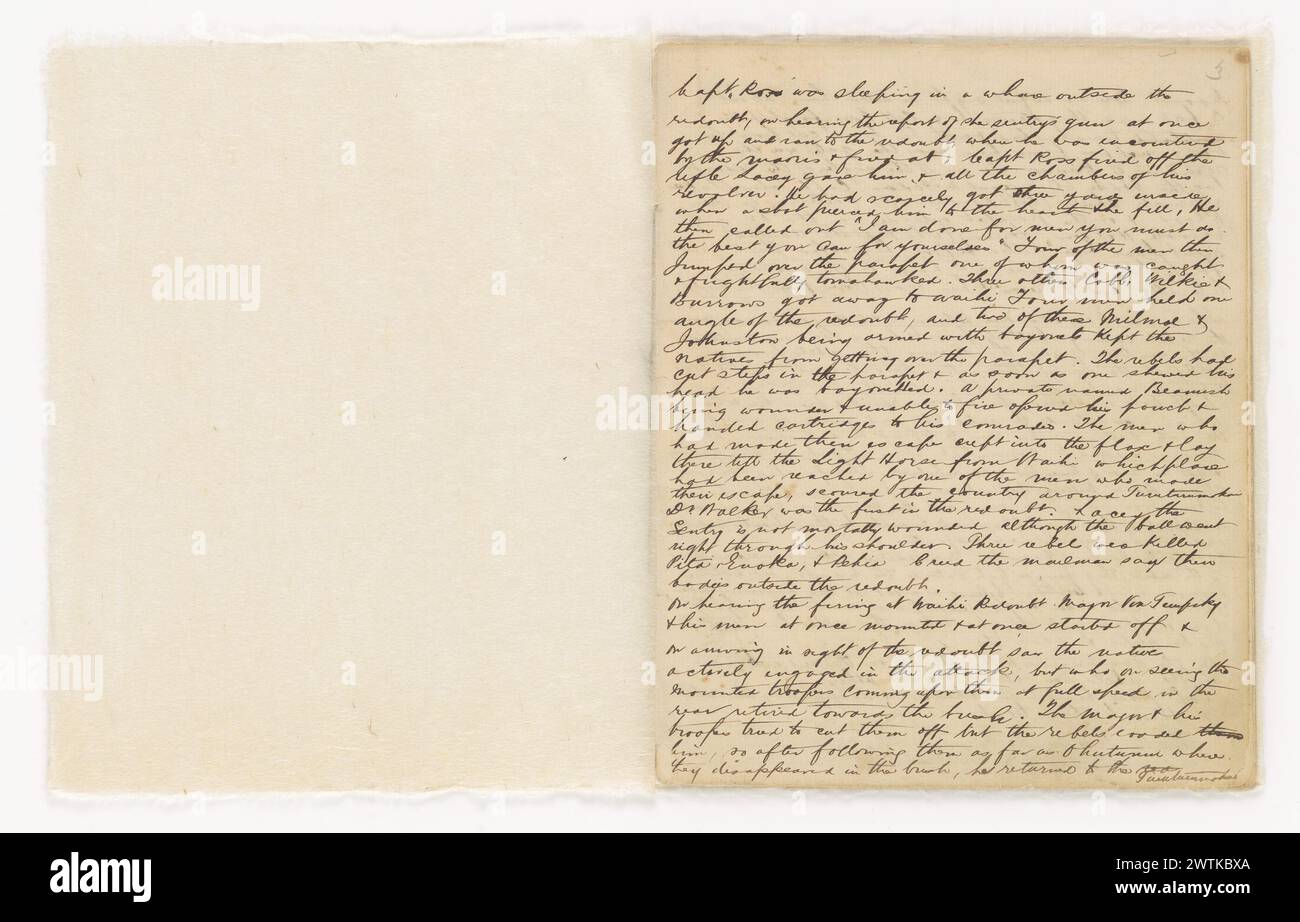 3
Capt. Ross was sleeping in a whare outside the
redoubt, on hearing the report of the sentry's gun at once
got up and ran to the redoubt, when he was encountered
by the maoris & fired at. Capt Ross fired off the
rifle Lacey gave him, & all the chambers of his
revolver. He had scarcely got three yards inside
when a shot pierced him to the heart & he fell, He
then called out "I am done for men you must do
the best you can for yourselves" Four of the men then
Jumped over the parapet one of whom was caught
& frightfully tomahawked. Three others Cobb, Wilkie &
Burrows got away to Waihi Four men held one
angle of the redoubt, and two of these Milmoe &
Johnston being armed with bayonets kept the
natives from getting over the parapet. The rebels had
cut steps in the parapet & as soon as one shewed his
head he was bayonetted. A private named Beamish
being wounded & unable to fire opened his pouch &
handed cartridges to his comrades. The men who
had made their escape crept into the flax & lay
there till the Light Horse from Waihi which place
had been reached by one of the men who made
their escape, scoured the country around Turuturumokai
Dr Walker was the first in the redoubt. Lacey the
Sentry is not mortally wounded although the ball went
right through his shoulder. Three rebels was killed
Pita, Enoka, & Rehia the mailman saw their
bodies outside the redoubt.
On hearing the firing at Waihi Redoubt Major Von Tempsky
& his men at once mounted & at once started off &
on arriving in sight of the redoubt saw the natives
actively engaged in the attack, but who on seeing the
mounted troopers coming upon them at full speed in the
rear retired towards the bush. The Major & his
troopers tried to cut them off but the rebels evaded them
him, so after following them as far as Ohutuna where
they disappeared in the bush, he returned to the
Turuturumokai
alamy
alamy
alamy
alamy
alamy
Image ID: 2WTKBXA
www.alamy.com